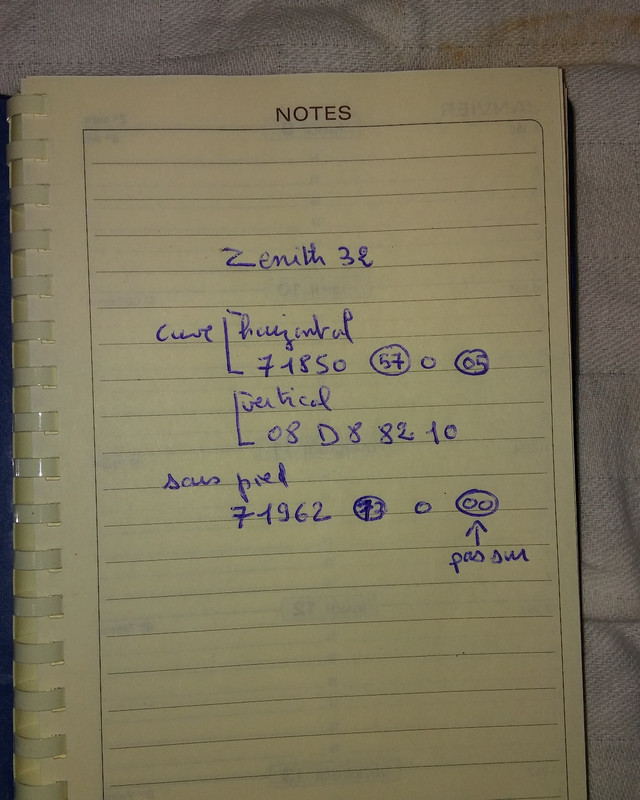 NOTES
Zenith 32
cuve horizontal
71850 57 0 05
vertical
08 D8 82 10
sans pied
71962 0 00
pas sur